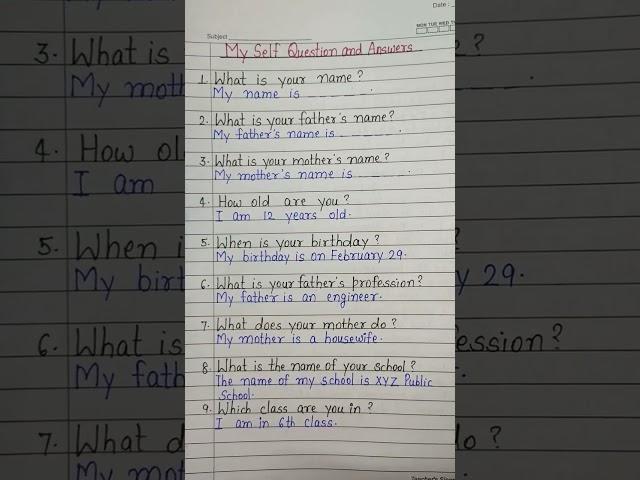 Date:
MON TUE WED
Subject
My Self Question and Answers
1. What is your name?
My name is ________.
2. What is your father's name?
My father's name is ________.
3. What is your mother's name?
My mother's name is ________.
4. How old are you?
I am 12 years old.
5. When is your birthday?
My birthday is on February 29.
6. What is your father's profession?
My father is an engineer.
7. What does your mother do?
My mother is a housewife.
8. What is the name of your school?
The name of my school is XYZ Public
School.
9. Which class are you in?
I am in 6th class.
3. What is
My moth
4. How ol
I am
5. When i
My birt
y 29.
6. What is
ession?
My fath
7. What d
do?
My mot